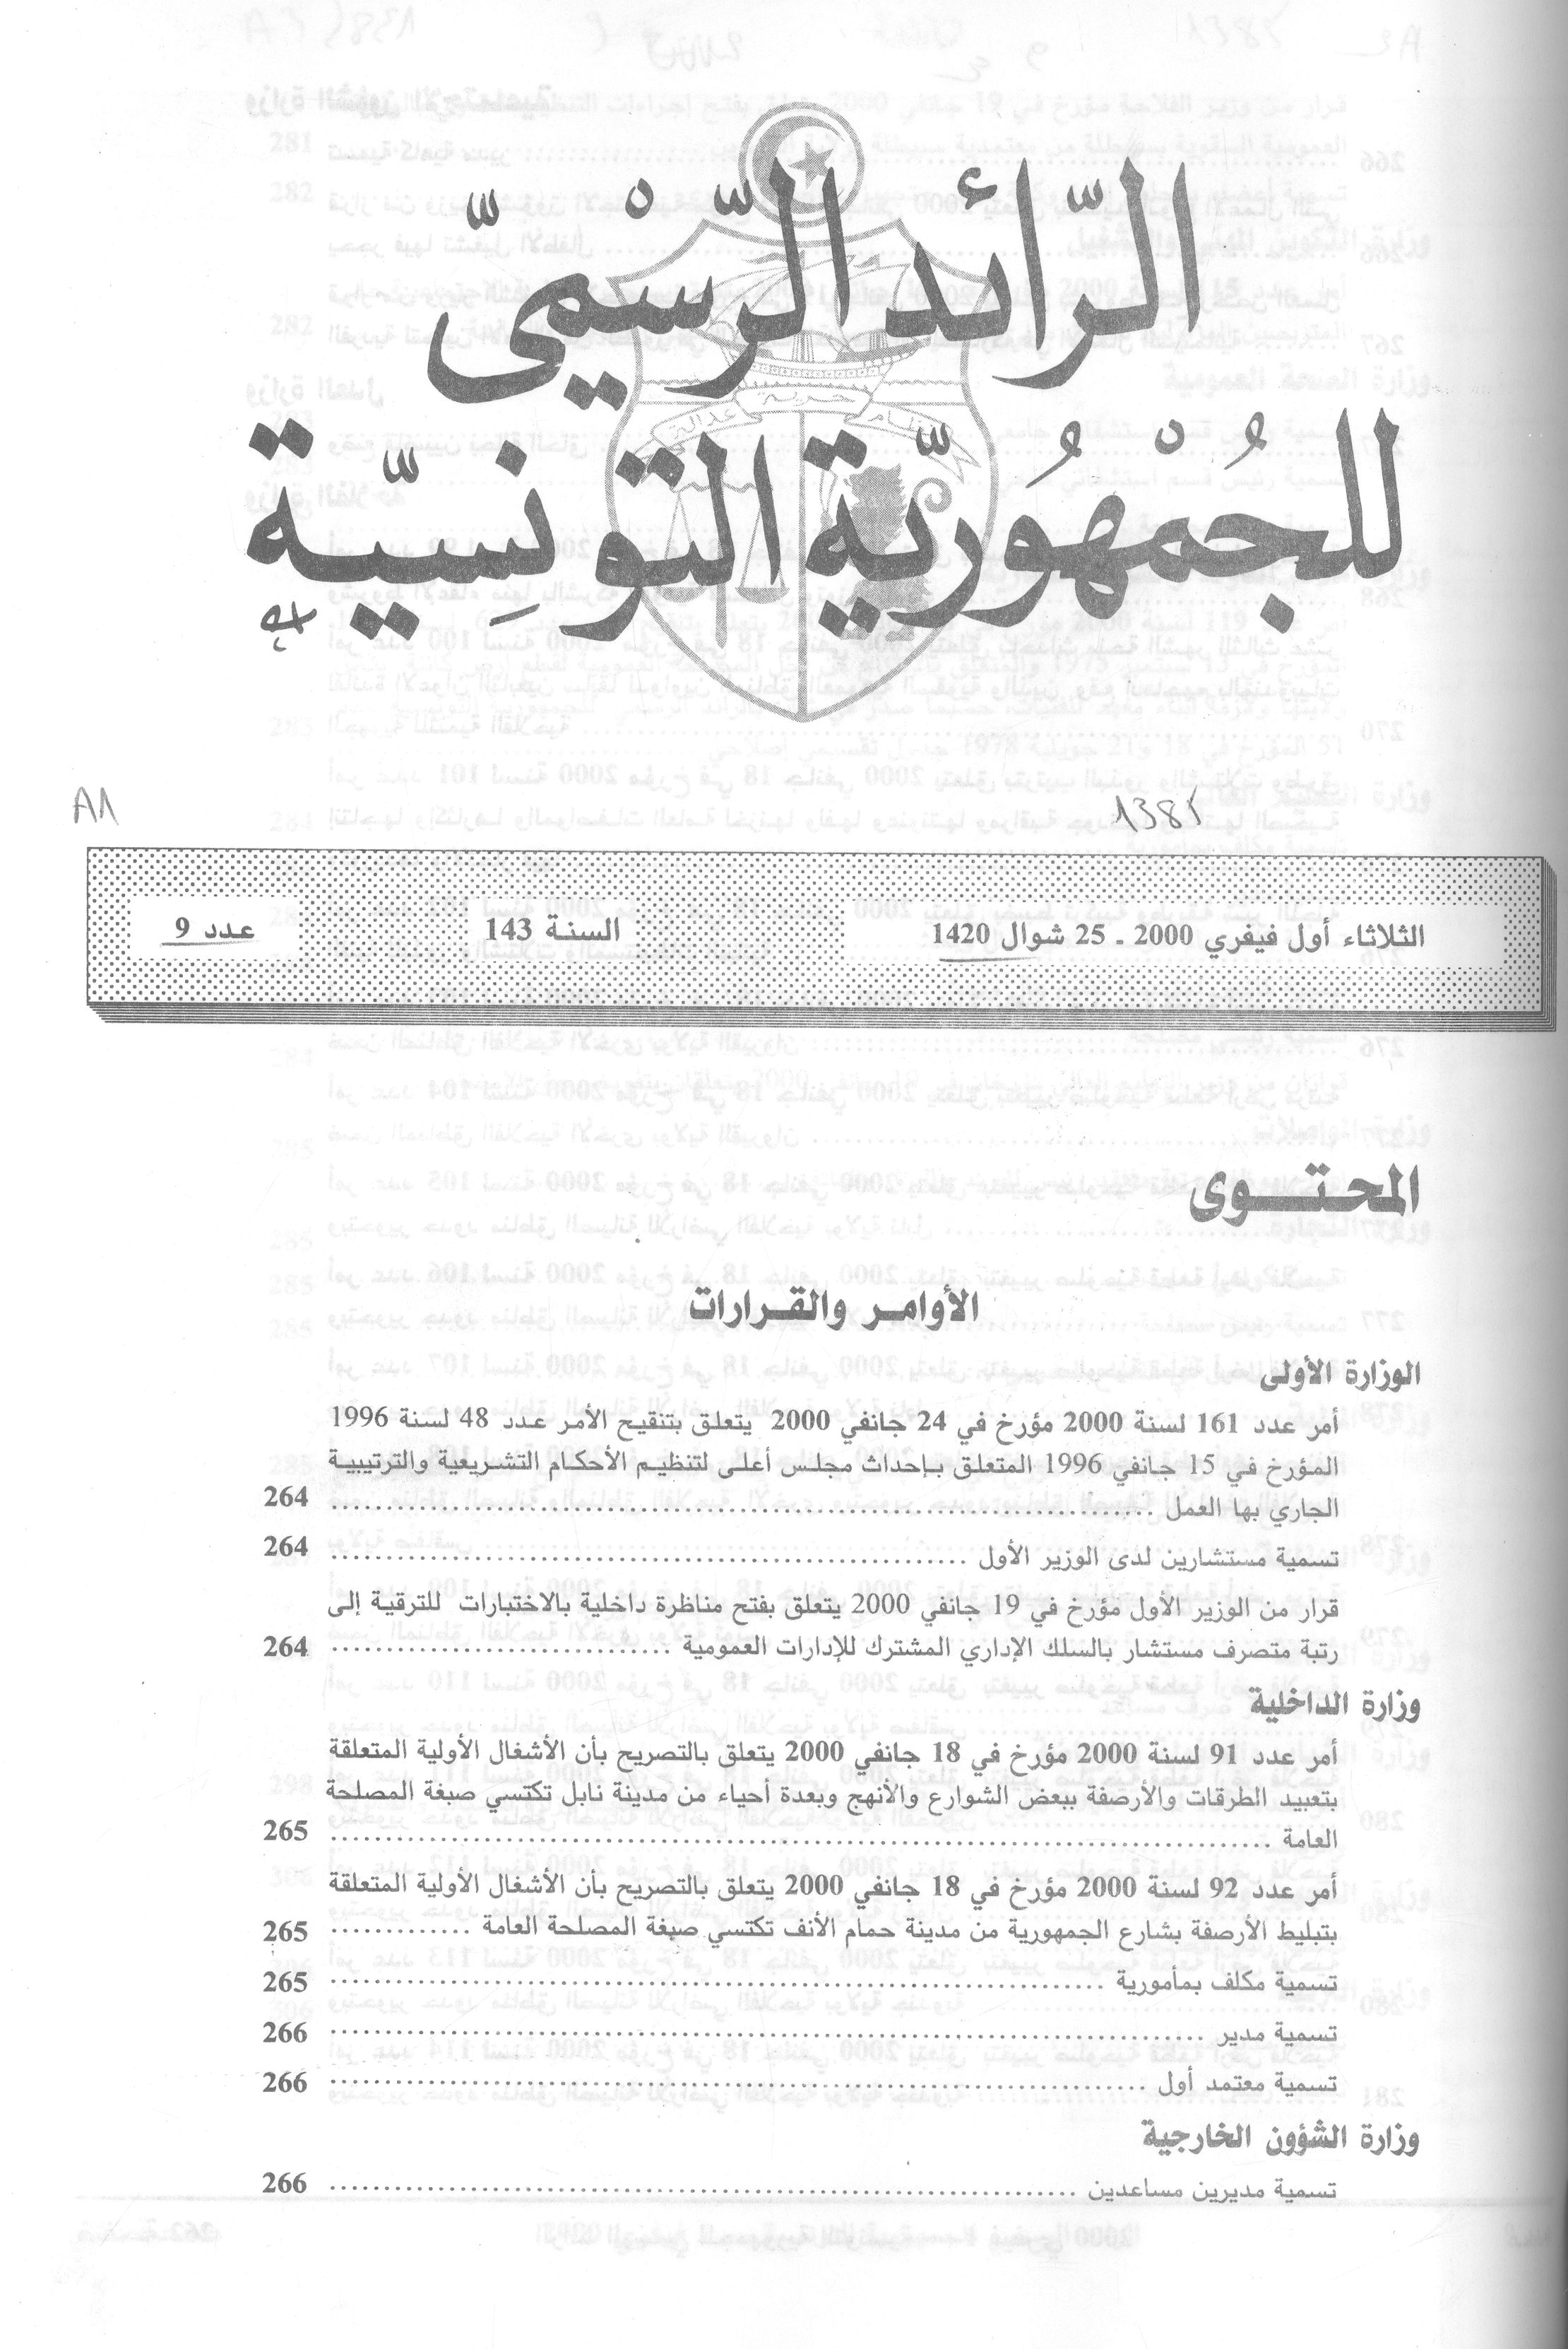 الرّائد الرّسْميّ
للجُمْهُوريّة التّونِسيّة
نظام حرية عدالة
A1
138
الثلاثاء أول فيفري 2000 ـ 25 شوال 1420
السنة 143
عدد 9
المحتوى
الأوامر والقرارات
الوزارة الأولى
أمر عدد 161 لسنة 2000 مؤرخ في 24 جانفي 2000 يتعلق بتنقيح الأمر عدد 48 لسنة 1996
المؤرخ في 15 جانفي 1996 المتعلق بإحداث مجلس أعلى لتنظيم الأحكام التشريعية والترتيبية
الجاري بها العمل ........................ 264
تسمية مستشارين لدى الوزير الأول ........................ 264
قرار من الوزير الأول مؤرخ في 19 جانفي 2000 يتعلق بفتح مناظرة داخلية بالاختبارات للترقية إلى
رتبة متصرف مستشار بالسلك الإداري المشترك للإدارات العمومية ........................ 264
وزارة الداخلية
أمر عدد 91 لسنة 2000 مؤرخ في 18 جانفي 2000 يتعلق بالتصريح بأن الأشغال الأولية المتعلقة
بتعبيد الطرقات والأرصفة ببعض الشوارع والأنهج وبعدة أحياء من مدينة نابل تكتسي صبغة المصلحة
العامة ........................ 265
أمر عدد 92 لسنة 2000 مؤرخ في 18 جانفي 2000 يتعلق بالتصريح بأن الأشغال الأولية المتعلقة
بتبليط الأرصفة بشارع الجمهورية من مدينة حمام الأنف تكتسي صبغة المصلحة العامة ............. 265
تسمية مكلف بمأمورية ........................ 265
تسمية مدير ........................ 266
تسمية معتمد أول ........................ 266
وزارة الشؤون الخارجية
تسمية مديرين مساعدين ........................ 266